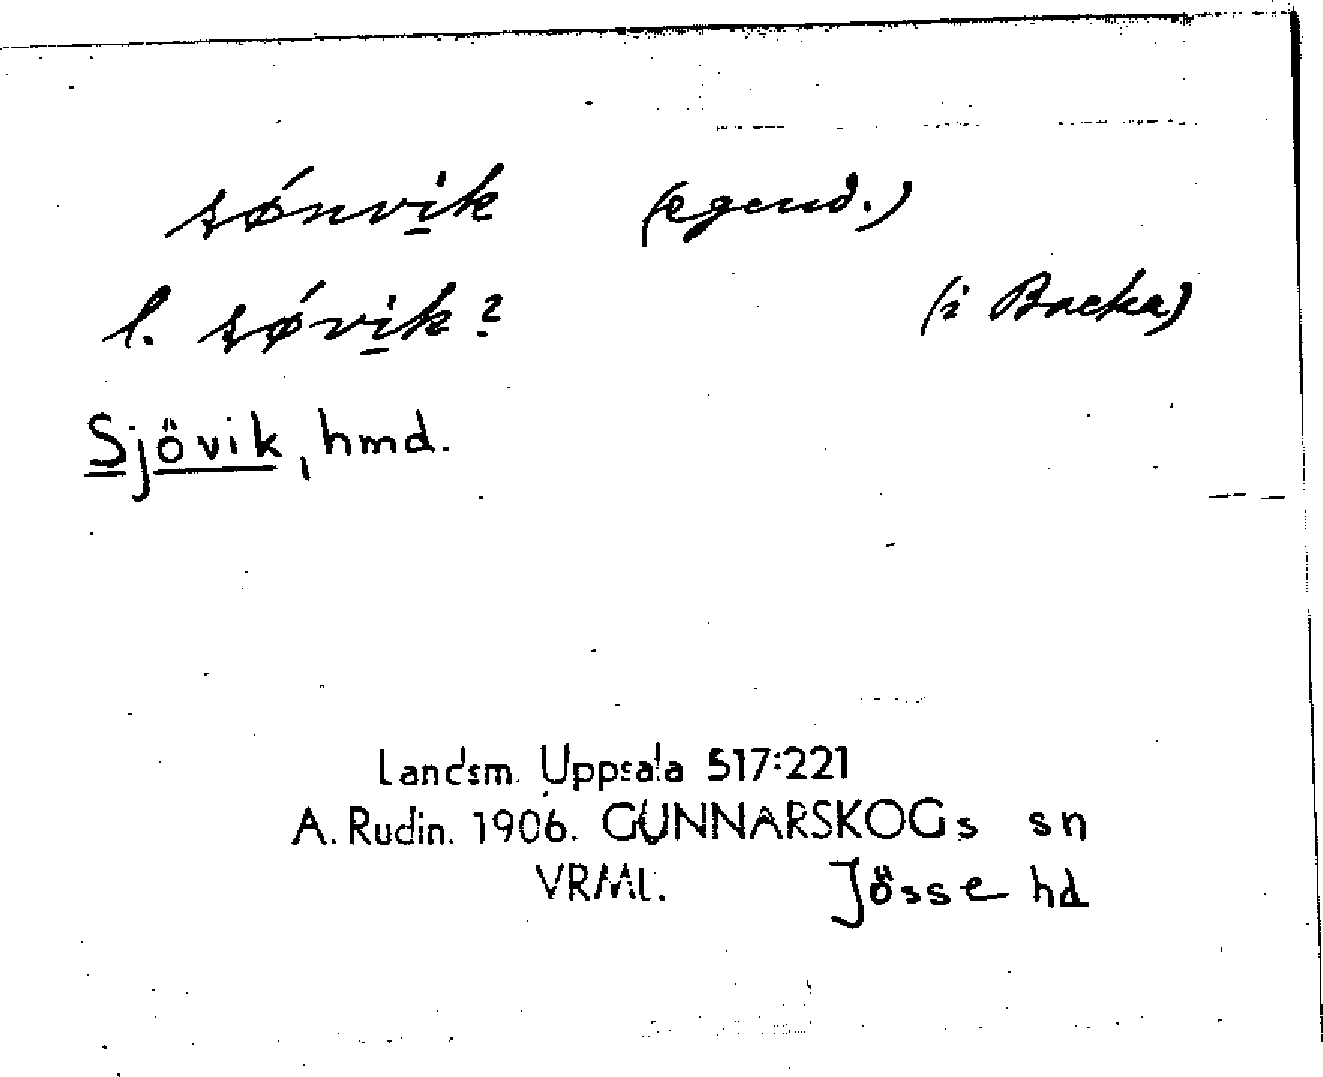 sǿnvi̠k (egend.)
l. sǿvi̠k? (i Backa)
Sjövik, hmd.
Landsm. Uppsala 517:221
A. Rudin. 1906. GUNNARSKOGs sn
VRML. Jösse hd